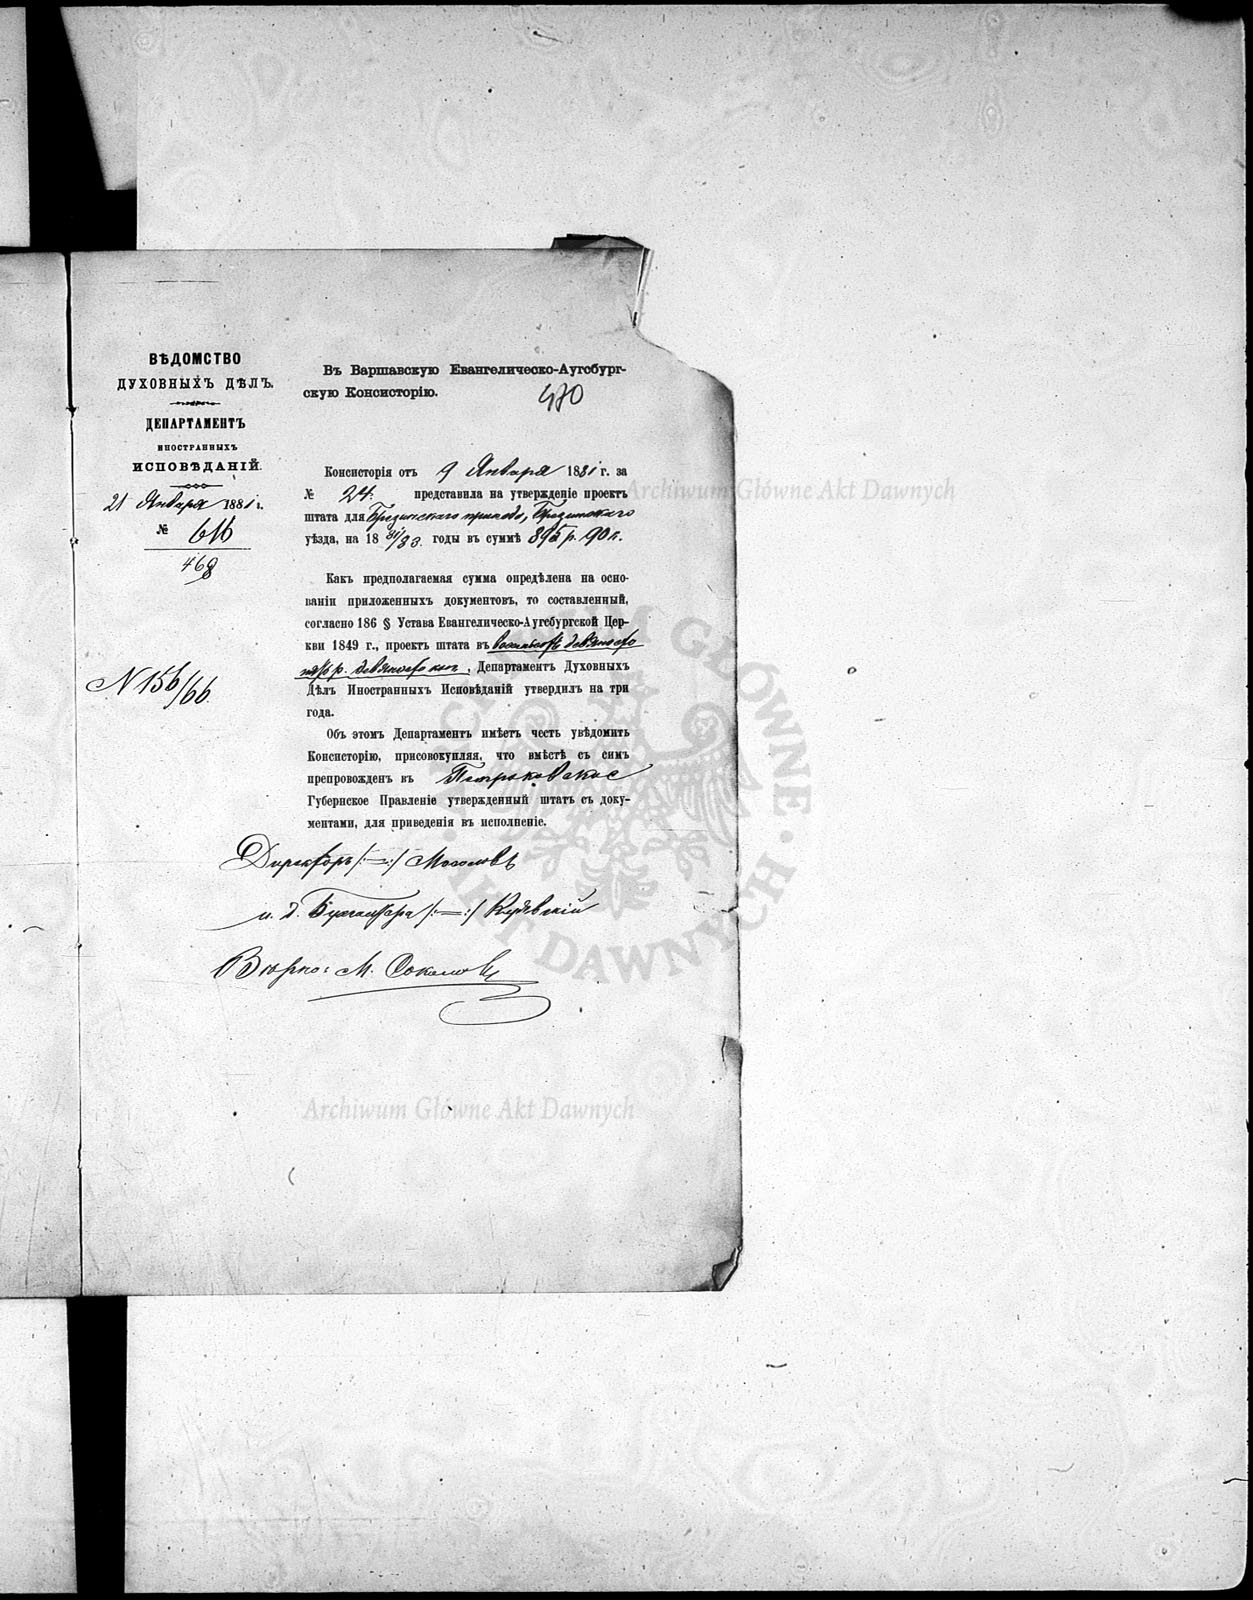 ВѢДОМСТВО
ДУХОВНЫХЪ ДѢЛЪ.
ДЕПАРТАМЕНТЪ
ИНОСТРАННЫХЪ
ИСПОВѢДАНІЙ.
21 Января 1881 г.
№ 616
468
N 156/66.
Въ Варшавскую Евангелическо-Аугсбург-
скую Консисторію.
470
Консисторія отъ 9 Января 1881 г. за
№ 24. представила на утвержденіе проектъ
штата для Брезинскаго прихода, Брезинскаго
уѣзда, на 18 81/83. годы въ суммѣ 895 р. 90 к.
Какъ предполагаемая сумма опредѣлена на осно-
ваніи приложенныхъ документовъ, то составленный,
согласно 186 § Устава Евангелическо-Аугсбургской Цер-
кви 1849 г., проектъ штата въ восемьсотъ девяносто
пять р. девяносто коп., Департаментъ Духовныхъ
Дѣлъ Иностранныхъ Исповѣданій утвердилъ на три
года.
Объ этомъ Департаментъ имѣетъ честь увѣдомить
Консисторію, присовокупляя, что вмѣстѣ съ симъ
препровожденъ въ Петроковское
Губернское Правленіе утвержденный штатъ съ доку-
ментами, для приведенія въ исполненіе.
Директоръ /:=:/ Мосоловъ
и. д. Бухгалтера /:=:/
Вѣрно: М. Соколовъ
Archiwum Główne Akt Dawnych
Archiwum Główne Akt Dawnych
ARCHIWUM GŁÓWNE · AKT DAWNYCH ·